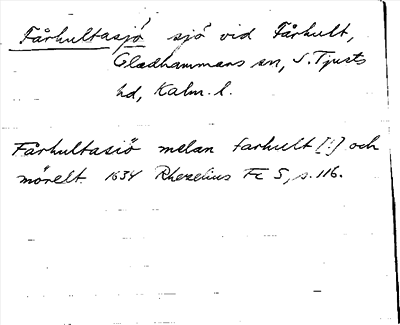 Fårhultasjö sjö vid Fårhult,
Gladhammars sn, S. Tjusts
hd, Kalm. l.
Fårhultasiö melan farhult [!] och
mörelt 1634 Rhezelius Fc 5, s. 116.